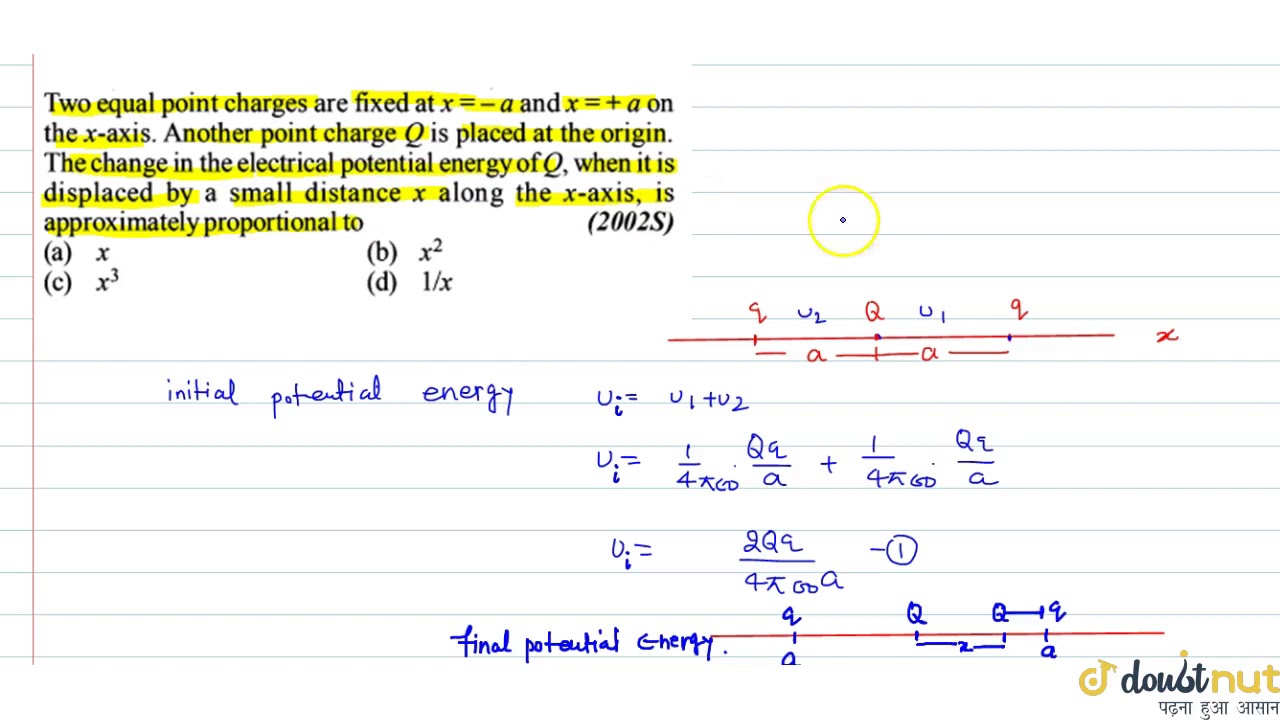 Two equal point charges are fixed at x = – a and x = + a on
the x-axis. Another point charge Q is placed at the origin.
The change in the electrical potential energy of Q, when it is
displaced by a small distance x along the x-axis, is
approximately proportional to (2002S)
(a) x (b) x²
(c) x³ (d) 1/x
q U₂ Q U₁ q
a a x
initial potential energy Uᵢ = U₁ + U₂
Uᵢ = 1/4π∈0 · Qq/a + 1/4π∈0 · Qq/a
Uᵢ = 2Qq/4π∈0 a – ①
q Q Q q
final potential Energy.
a x a
doubtnut
पढ़ना हुआ आसान